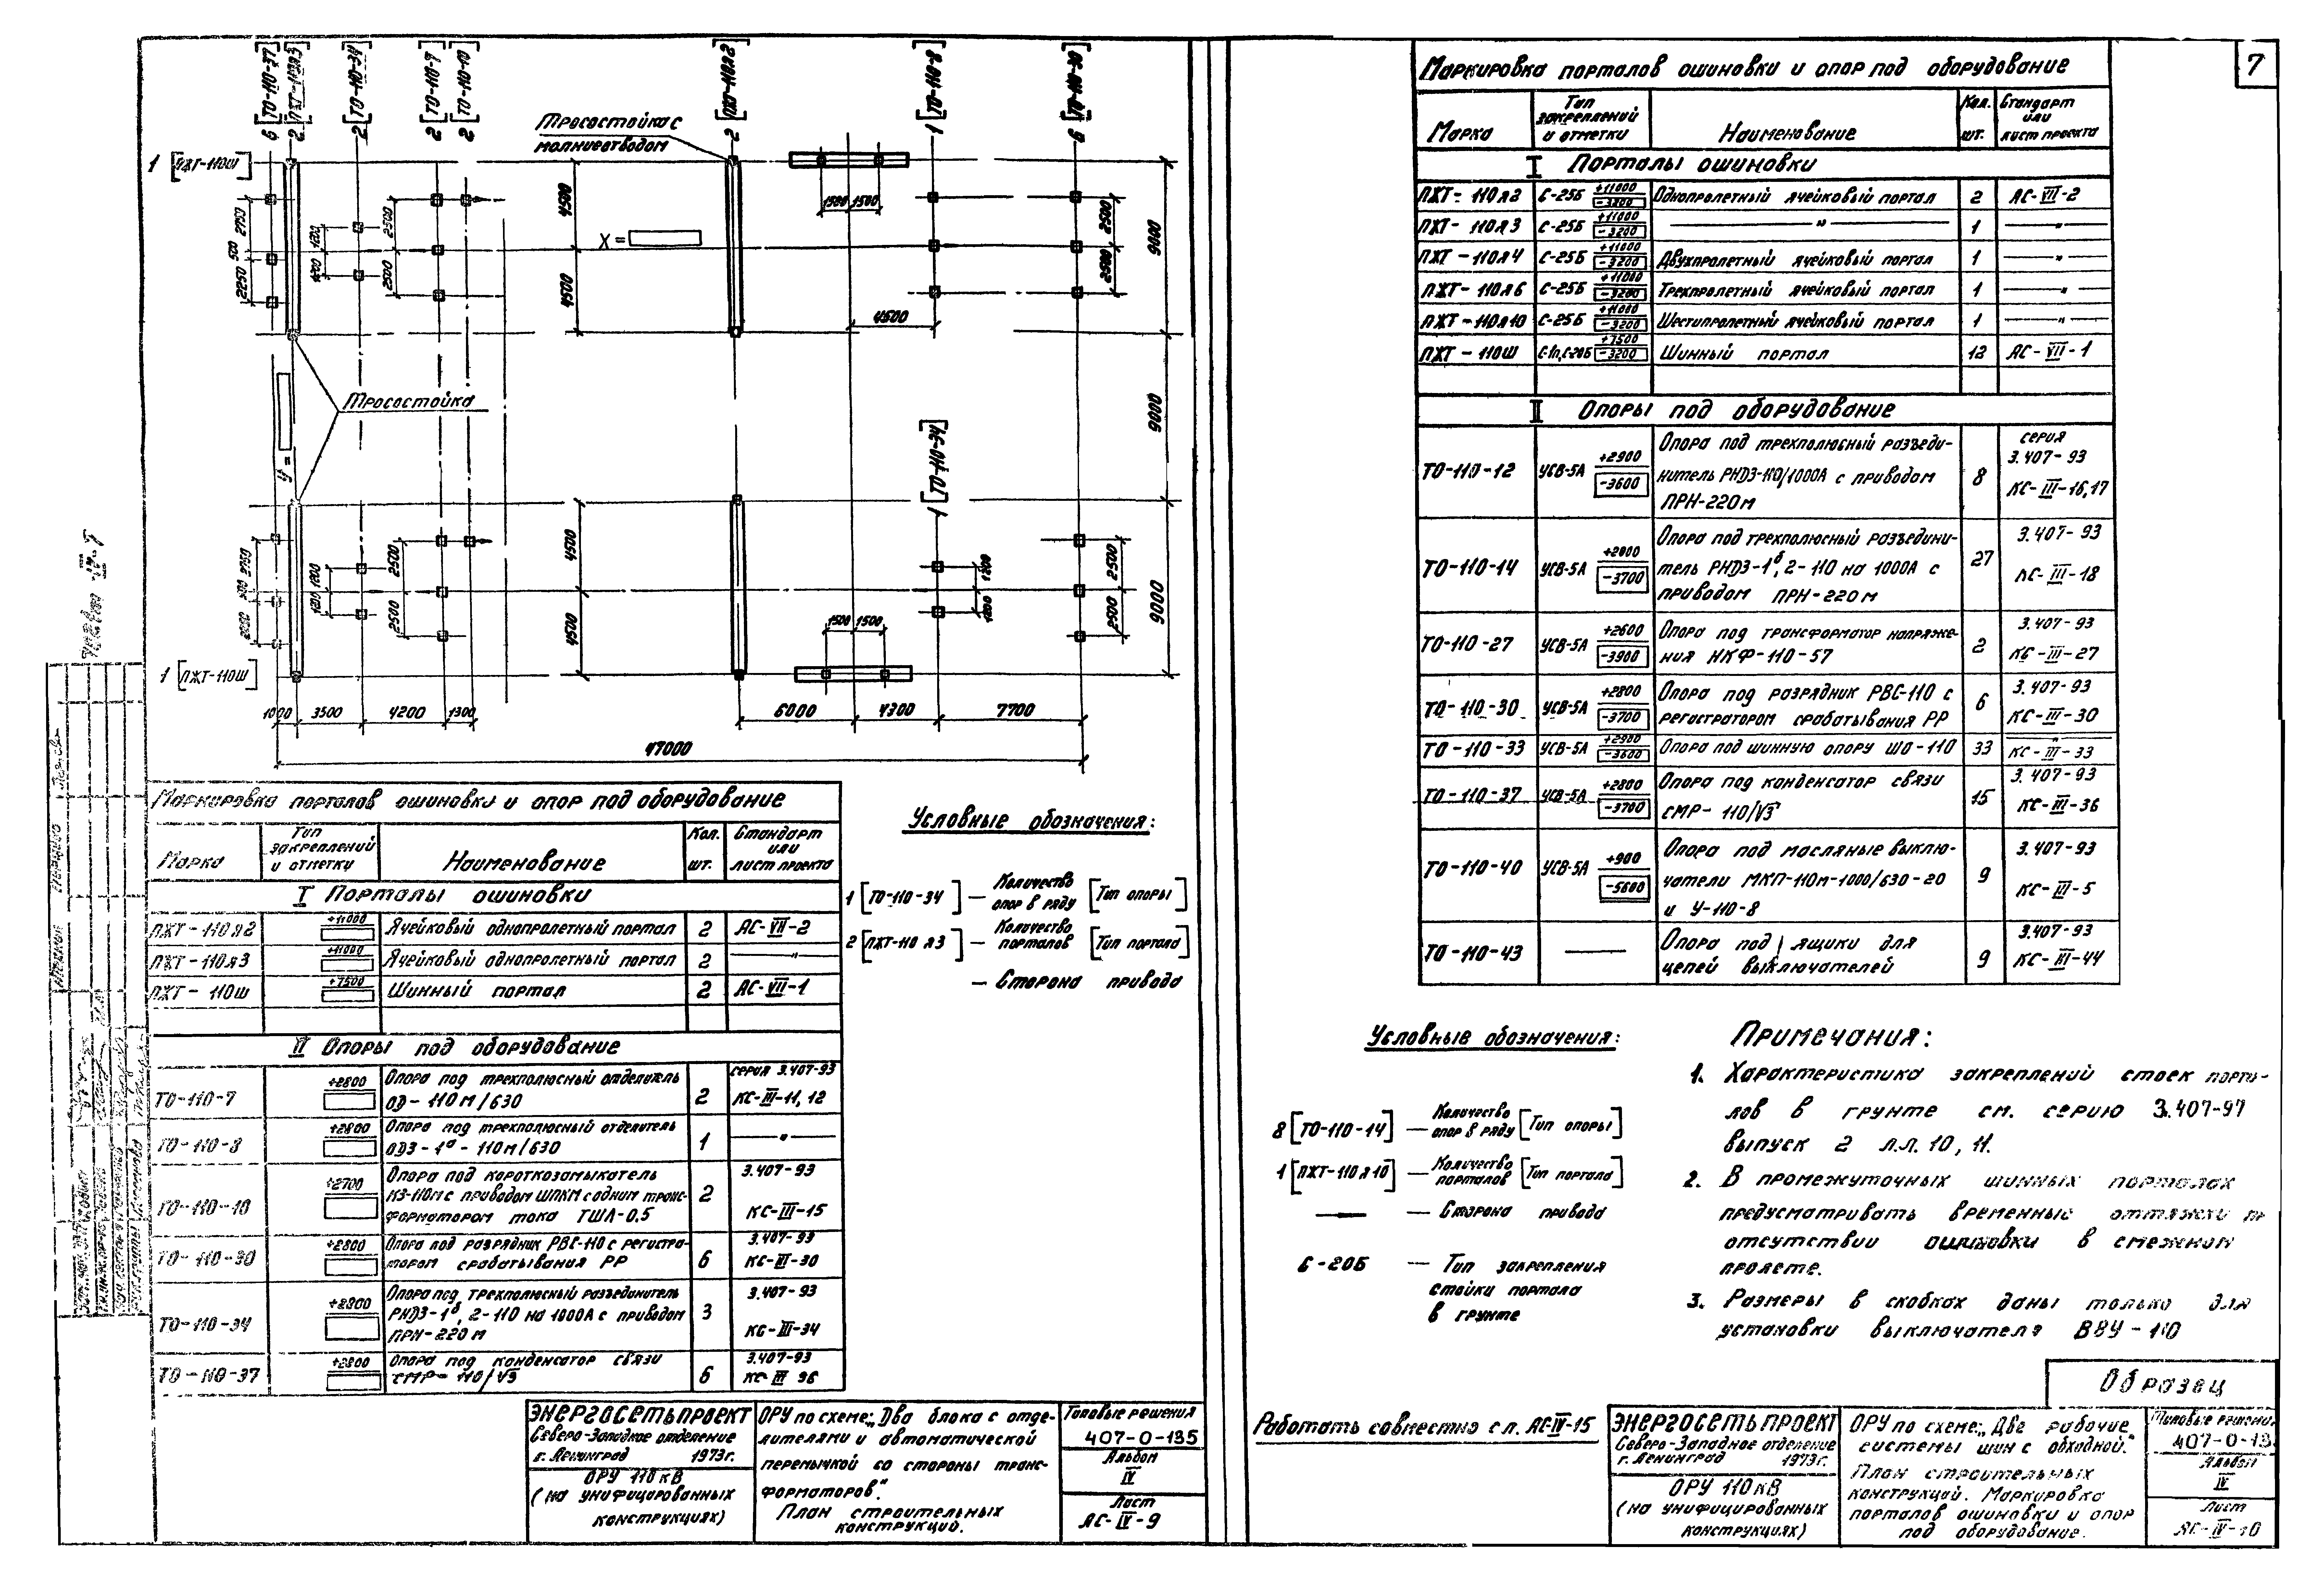 7
6 [ТО-110-37]
2 [ПЖТ-110Я3]
2 [ТО-110-34]
2 [ТО-110-7]
2 [ТО-110-10]
2 [ПЖТ-110Я2]
1 [ТО-110-8]
6 [ТО-110-30]
1 [ПЖТ-110Ш]
Тросостойка с
молниеотводом
2750
500
2250
1200
1200
2500
2500
4500
4500
X=
1500 1500
4500
2500
2500
9000
Тросостойка
У =
9000
1 [ТО-110-34]
2750
500
1200
1200
2500
2500
4500
4500
1500 1500
1200
1200
2500
2500
9000
1 [ПЖТ-110Ш]
1000 3500 4200 1300 6000 4300 7700
47000
Маркировка порталов ошиновки и опор под оборудование
Марка Тип закреплений и отметки Наименование Кол. шт. Стандарт или лист проекта
I Порталы ошиновки
ПЖТ-110Я2 +11000 Ячейковый однопролетный портал 2 АС-VII-2
ПЖТ-110Я3 +11000 Ячейковый однопролетный портал 2 — " —
ПЖТ-110Ш +7500 Шинный портал 2 АС-VII-1
II Опоры под оборудование
ТО-110-7 +2800 Опора под трехполюсный отделитель ОД-110м/630 2 серия 3.407-93 КС-III-11, 12
ТО-110-8 +2800 Опора под трехполюсный отделитель ОДЗ-1а-110м/630 1 — " —
ТО-110-10 +2700 Опора под короткозамыкатель КЗ-110м с приводом ШПКМ с одним трансформатором тока ТШЛ-0.5 2 3.407-93 КС-III-15
ТО-110-30 +2800 Опора под разрядник РВС-110 с регистратором срабатывания РР 6 3.407-93 КС-III-30
ТО-110-34 +2900 Опора под трехполюсный разъединитель РНДЗ-1б, 2-110 на 1000А с приводом ПРН-220м 3 3.407-93 КС-III-34
ТО-110-37 +2800 Опора под конденсатор связи СМР-110/√3 6 3.407-93 КС III 36
Условные обозначения:
1 [ТО-110-34] — Количество опор в ряду [Тип опоры]
2 [ПЖТ-110Я3] — Количество порталов [Тип портала]
— Сторона привода
ЭНЕРГОСЕТЬПРОЕКТ
Северо-Западное отделение
г. Ленинград 1973г.
ОРУ 110кВ
(на унифицированных
конструкциях)
ОРУ по схеме: „Два блока с отде-
лителями и автоматической
перемычкой со стороны транс-
форматоров".
План строительных
конструкций.
Типовые решения
407-0-135
Альбом
IV
Лист
АС-IV-9
Маркировка порталов ошиновки и опор под оборудование
Марка Тип закреплений и отметки Наименование Кол. шт. Стандарт или лист проекта
I Порталы ошиновки
ПЖТ-110Я2 С-25Б +11000 -3200 Однопролетный ячейковый портал 2 АС-VII-2
ПЖТ-110Я3 С-25Б +11000 -3200 — " — 1 — " —
ПЖТ-110Я4 С-25Б +11000 -3200 Двухпролетный ячейковый портал 1 — " —
ПЖТ-110Я6 С-25Б +11000 -3200 Трехпролетный ячейковый портал 1 — " —
ПЖТ-110Я10 С-25Б +11000 -3200 Шестипролетный ячейковый портал 1 — " —
ПЖТ-110Ш С-1п, С-20Б +7500 -3200 Шинный портал 12 АС-VII-1
II Опоры под оборудование
ТО-110-12 УСВ-5А +2900 -3600 Опора под трехполюсный разъединитель РНДЗ-110/1000А с приводом ПРН-220м 8 серия 3.407-93 КС-III-16,17
ТО-110-14 УСВ-5А +2800 -3700 Опора под трехполюсный разъединитель РНДЗ-1б, 2-110 на 1000А с приводом ПРН-220м 27 3.407-93 КС-III-18
ТО-110-27 УСВ-5А +2600 -3900 Опора под трансформатор напряжения НКФ-110-57 2 3.407-93 КС-III-27
ТО-110-30 УСВ-5А +2800 -3700 Опора под разрядник РВС-110 с регистратором срабатывания РР 6 3.407-93 КС-III-30
ТО-110-33 УСВ-5А +2900 -3600 Опора под шинную опору ШО-110 33 КС-III-33
ТО-110-37 УСВ-5А +2800 -3700 Опора под конденсатор связи СМР-110/√3 15 3.407-93 КС-III-36
ТО-110-40 УСВ-5А +900 -5600 Опора под масляные выключатели МКП-110м-1000/630-20 и У-110-8 9 3.407-93 КС-III-5
ТО-110-43 — Опора под ящики для цепей выключателей 9 3.407-93 КС-III-44
Условные обозначения:
8 [ТО-110-14] — Количество опор в ряду [Тип опоры]
1 [ПЖТ-110Я10] — Количество порталов [Тип портала]
— Сторона привода
С-20Б — Тип закрепления
стойки портала
в грунте
Примечания:
1. Характеристика закреплений стоек порта-
лов в грунте см. серию 3.407-97
выпуск 2 л.л. 10, 11.
2. В промежуточных шинных порталах
предусматривать временные оттяжки
отсутствии ошиновки в смежном
пролете.
3. Размеры в скобках даны только для
установки выключателя ВВУ-110
Образец
Работать совместно с л. АС-IV-15
ЭНЕРГОСЕТЬПРОЕКТ
Северо-Западное отделение
г. Ленинград 1973г.
ОРУ 110кВ
(на унифицированных
конструкциях)
ОРУ по схеме: „Две рабочие
системы шин с обходной."
План строительных
конструкций. Маркировка
порталов ошиновки и опор
под оборудование.
Типовые решения
407-0-13
Альбом
IV
Лист
АС-IV-10